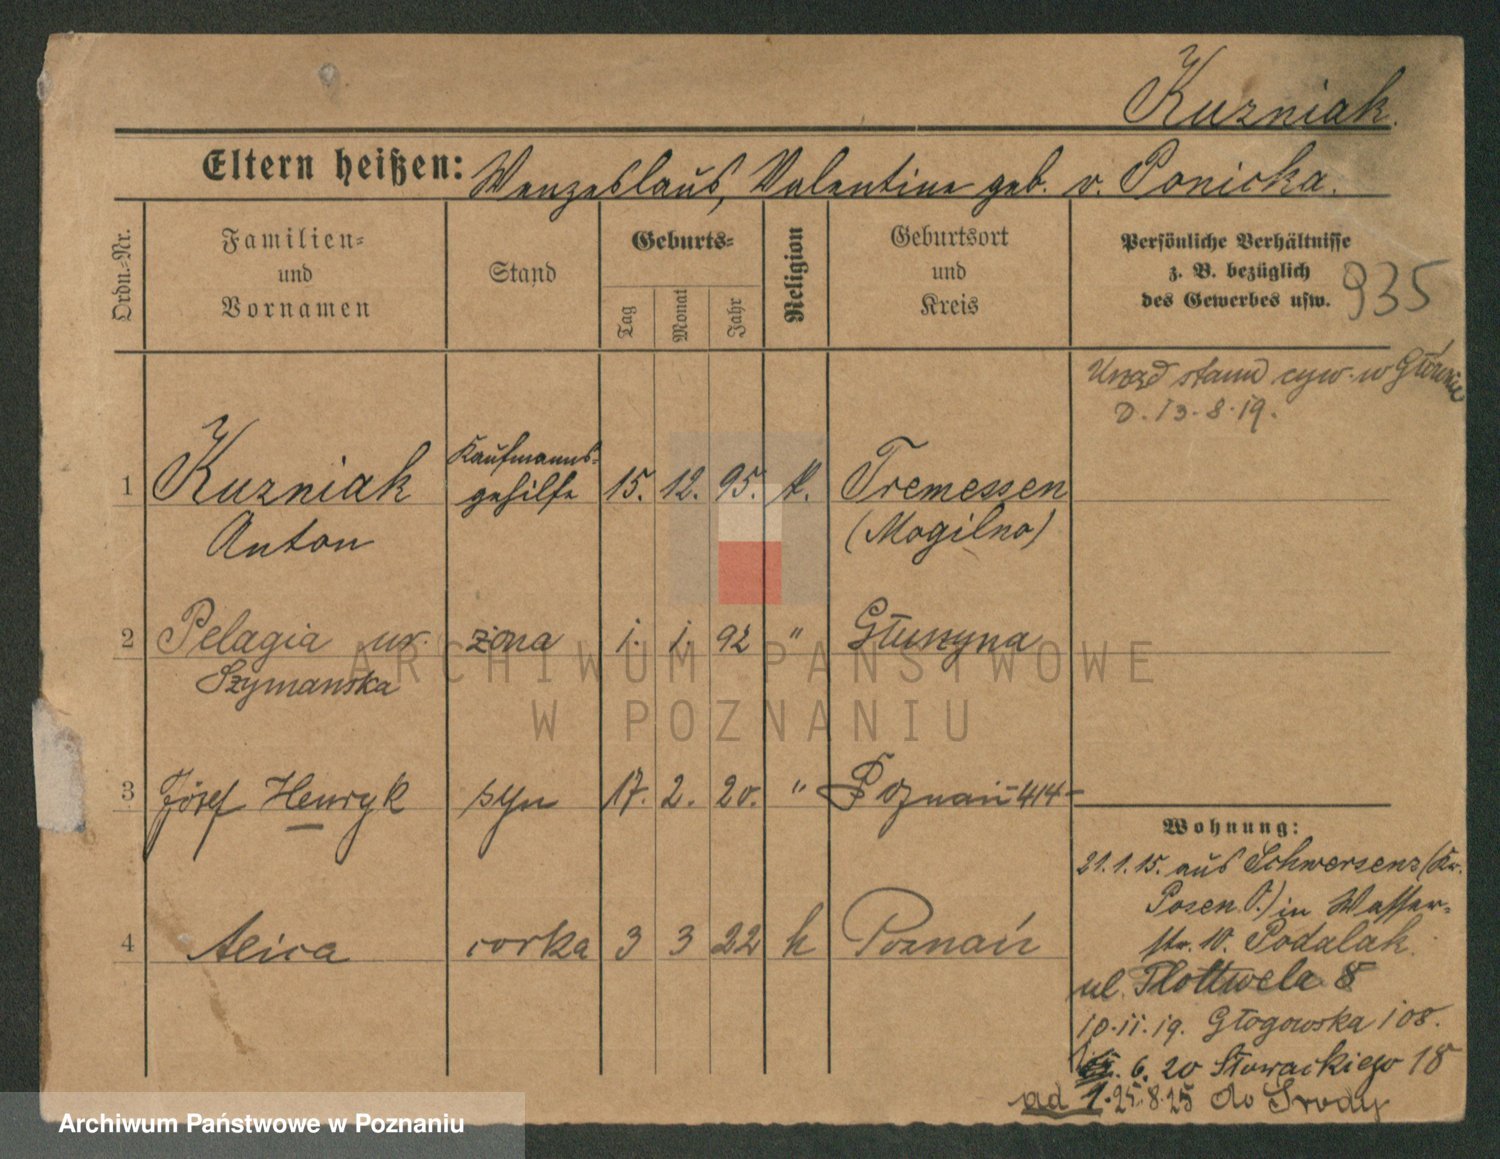 Kuzniak.
Eltern heißen: Wenzeslaus, Valentine geb. v. Ponicka.
Ordn.-Nr.
Familien-
und
Vornamen
Stand
Geburts-
Tag
Monat
Jahr
Religion
Geburtsort
und
Kreis
Persönliche Verhältnisse
z. B. bezüglich
des Gewerbes usw.
935
Urząd stanu cyw. w Głównie
D. 13.8.19.
1 Kuzniak Kaufmanns- 15. 12. 95. k. Tremessen
Anton gehilfe (Mogilno)
2 Pelagia ur. żona 1. 1. 92 " Głuszyna
Szymanska
3 Józef Henryk syn 17. 2. 20. " Poznań 414
4 Alica corka 3 3 22 k Poznań
Wohnung:
21.1.15. aus Schwersenz (Kr.
Posen O.) in Wasser-
str. 10. Podalak.
ul. Flottwela 8
10.11.19. Głogowska 108.
6. 20 Słowackiego 18
ad 1. 25.8.25 do Srody
ARCHIWUM PAŃSTWOWE
W POZNANIU
Archiwum Państwowe w Poznaniu